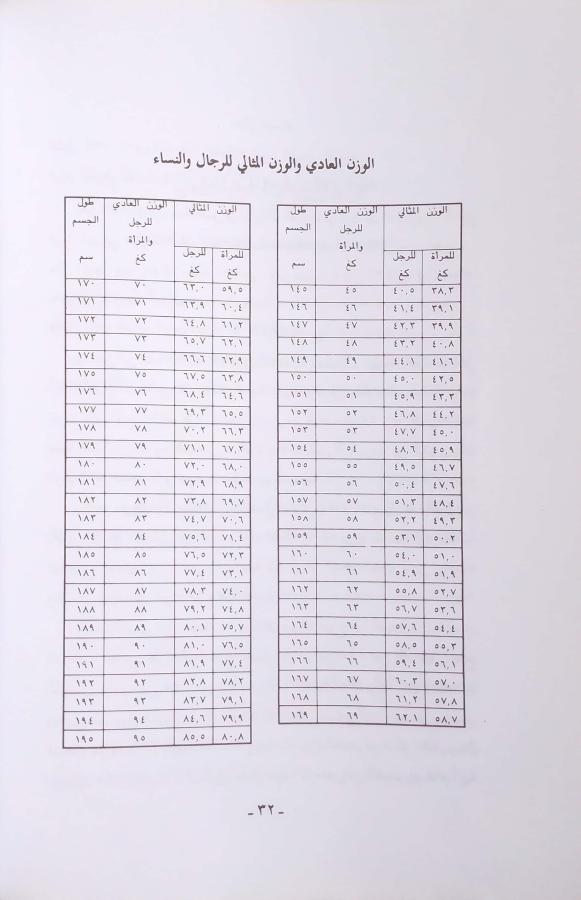 الوزن العادي والوزن المثالي للرجال والنساء
الوزن المثالي الوزن العادي طول
للرجل الجسم
والمرأة
للمرأة للرجل كغ سم
كغ كغ
٣٨,٣ ٤٠,٥ ٤٥ ١٤٥
٣٩,١ ٤١,٤ ٤٦ ١٤٦
٣٩,٩ ٤٢,٣ ٤٧ ١٤٧
٤٠,٨ ٤٣,٢ ٤٨ ١٤٨
٤١,٦ ٤٤,١ ٤٩ ١٤٩
٤٢,٥ ٤٥,٠ ٥٠ ١٥٠
٤٣,٣ ٤٥,٩ ٥١ ١٥١
٤٤,٢ ٤٦,٨ ٥٢ ١٥٢
٤٥,٠ ٤٧,٧ ٥٣ ١٥٣
٤٥,٩ ٤٨,٦ ٥٤ ١٥٤
٤٦,٧ ٤٩,٥ ٥٥ ١٥٥
٤٧,٦ ٥٠,٤ ٥٦ ١٥٦
٤٨,٤ ٥١,٣ ٥٧ ١٥٧
٤٩,٣ ٥٢,٢ ٥٨ ١٥٨
٥٠,٢ ٥٣,١ ٥٩ ١٥٩
٥١,٠ ٥٤,٠ ٦٠ ١٦٠
٥١,٩ ٥٤,٩ ٦١ ١٦١
٥٢,٧ ٥٥,٨ ٦٢ ١٦٢
٥٣,٦ ٥٦,٧ ٦٣ ١٦٣
٥٤,٤ ٥٧,٦ ٦٤ ١٦٤
٥٥,٣ ٥٨,٥ ٦٥ ١٦٥
٥٦,١ ٥٩,٤ ٦٦ ١٦٦
٥٧,٠ ٦٠,٣ ٦٧ ١٦٧
٥٧,٨ ٦١,٢ ٦٨ ١٦٨
٥٨,٧ ٦٢,١ ٦٩ ١٦٩
الوزن المثالي الوزن العادي طول
للرجل الجسم
والمرأة
للمرأة للرجل كغ سم
كغ كغ
٥٩,٥ ٦٣,٠ ٧٠ ١٧٠
٦٠,٤ ٦٣,٩ ٧١ ١٧١
٦١,٢ ٦٤,٨ ٧٢ ١٧٢
٦٢,١ ٦٥,٧ ٧٣ ١٧٣
٦٢,٩ ٦٦,٦ ٧٤ ١٧٤
٦٣,٨ ٦٧,٥ ٧٥ ١٧٥
٦٤,٦ ٦٨,٤ ٧٦ ١٧٦
٦٥,٥ ٦٩,٣ ٧٧ ١٧٧
٦٦,٣ ٧٠,٢ ٧٨ ١٧٨
٦٧,٢ ٧١,١ ٧٩ ١٧٩
٦٨,٠ ٧٢,٠ ٨٠ ١٨٠
٦٨,٩ ٧٢,٩ ٨١ ١٨١
٦٩,٧ ٧٣,٨ ٨٢ ١٨٢
٧٠,٦ ٧٤,٧ ٨٣ ١٨٣
٧١,٤ ٧٥,٦ ٨٤ ١٨٤
٧٢,٣ ٧٦,٥ ٨٥ ١٨٥
٧٣,١ ٧٧,٤ ٨٦ ١٨٦
٧٤,٠ ٧٨,٣ ٨٧ ١٨٧
٧٤,٨ ٧٩,٢ ٨٨ ١٨٨
٧٥,٧ ٨٠,١ ٨٩ ١٨٩
٧٦,٥ ٨١,٠ ٩٠ ١٩٠
٧٧,٤ ٨١,٩ ٩١ ١٩١
٧٨,٢ ٨٢,٨ ٩٢ ١٩٢
٧٩,١ ٨٣,٧ ٩٣ ١٩٣
٧٩,٩ ٨٤,٦ ٩٤ ١٩٤
٨٠,٨ ٨٥,٥ ٩٥ ١٩٥
- ٣٢ -